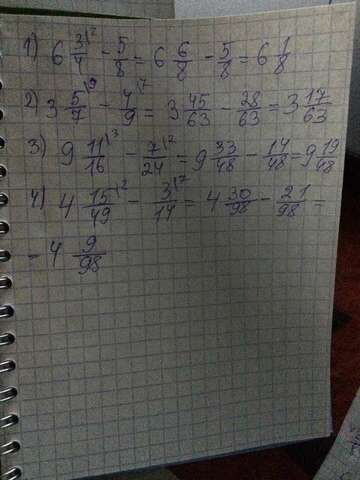 1) 6 3/4 |2 - 5/8 = 6 6/8 - 5/8 = 6 1/8
2) 3 5/7 |9 - 4/9 |7 = 3 45/63 - 28/63 = 3 17/63
3) 9 11/16 |3 - 7/24 |2 = 9 33/48 - 14/48 = 9 19/48
4) 4 15/49 |2 - 3/14 |7 = 4 30/98 - 21/98 =
= 4 9/98